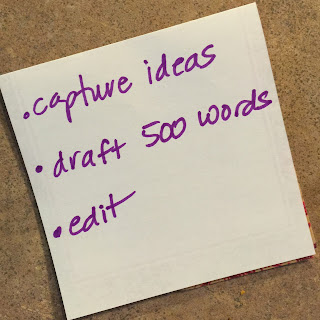 • capture ideas
• draft 500 words
• edit